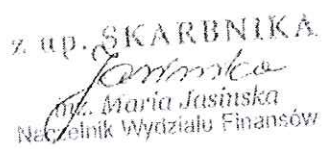 z up. SKARBNIKA
Jasińska
mgr Maria Jasińska
Naczelnik Wydziału Finansów